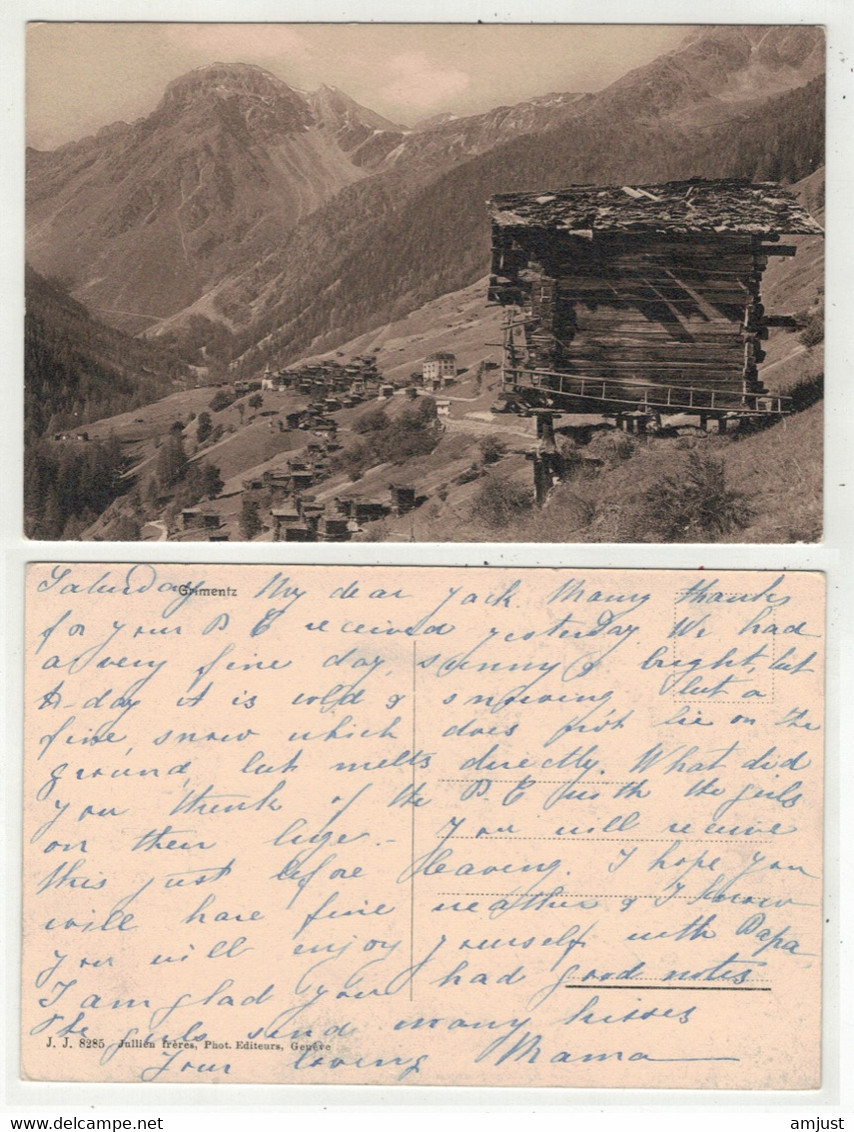 Grimentz
Saturday My dear Jack. Many thanks
for your P.C received yesterday. We had
a very fine day, sunny & bright, but
to-day it is cold & snowing but a
fine snow which does not lie on the
ground, but melts directly. What did
you think of the P.C with the girls
on their luge. - You will receive
this just before leaving. I hope you
will have fine weather & I know
you will enjoy yourself with Papa
I am glad you had good notes
The girls send many kisses
Your loving Mama
J. J. 8285 Jullien frères, Phot. Editeurs, Genève
amjust